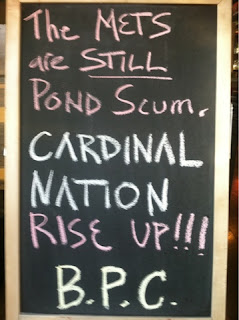 The METS
are STILL
POND SCUM.
CARDINAL
NATION
RISE UP!!!
B.P.C.